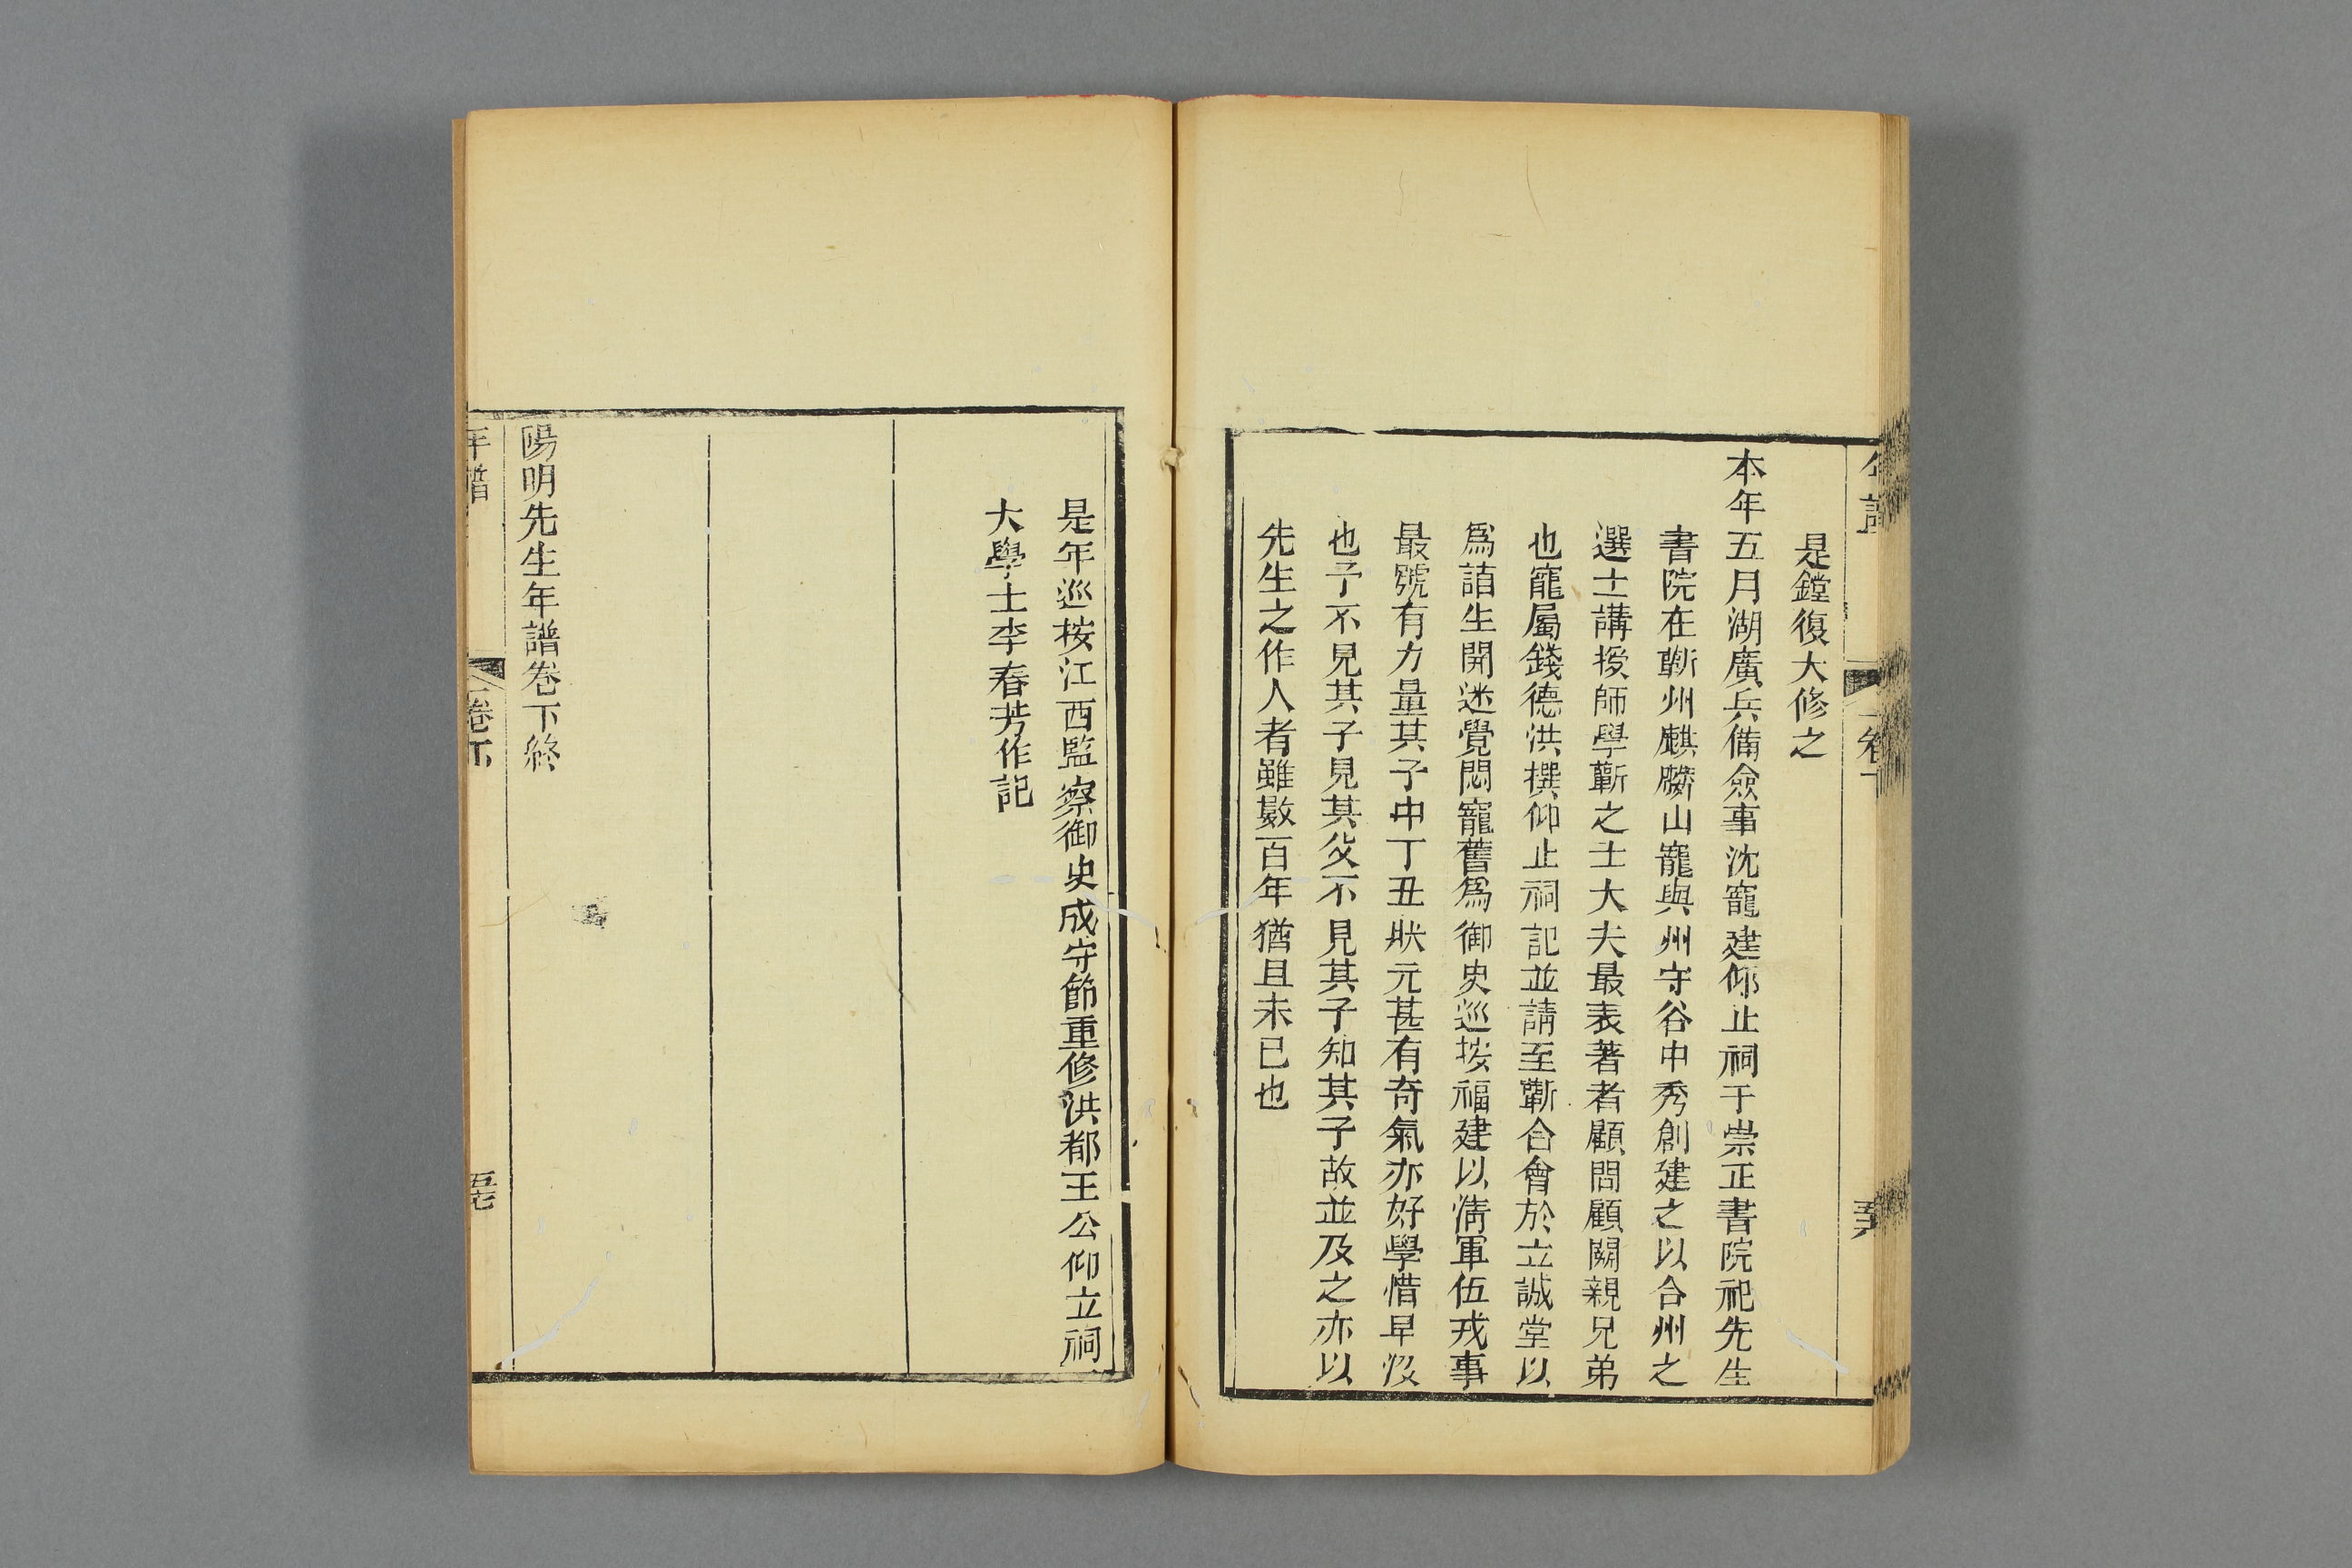 是鏜復大修之
本年五月湖廣兵備僉事沈寵建仰止祠于崇正書院祀先生
書院在蘄州麒麟山寵與州守谷中秀創建之以合州之
選士講授師學蘄之士大夫最表著者顧問顧闕親兄弟
也寵屬錢德洪撰仰止祠記並請至蘄合會於立誠堂以
爲諸生開迷覺悶寵舊爲御史巡按福建以淸軍伍戎事
最號有力量其子中丁丑狀元甚有奇氣亦好學惜早沒
也予不見其子見其父不見其子知其子故並及之亦以
先生之作人者雖數百年猶且未已也
是年巡按江西監察御史成守節重修洪都王公仰立祠
大學士李春芳作記
陽明先生年譜卷下終
年譜
卷下
五七